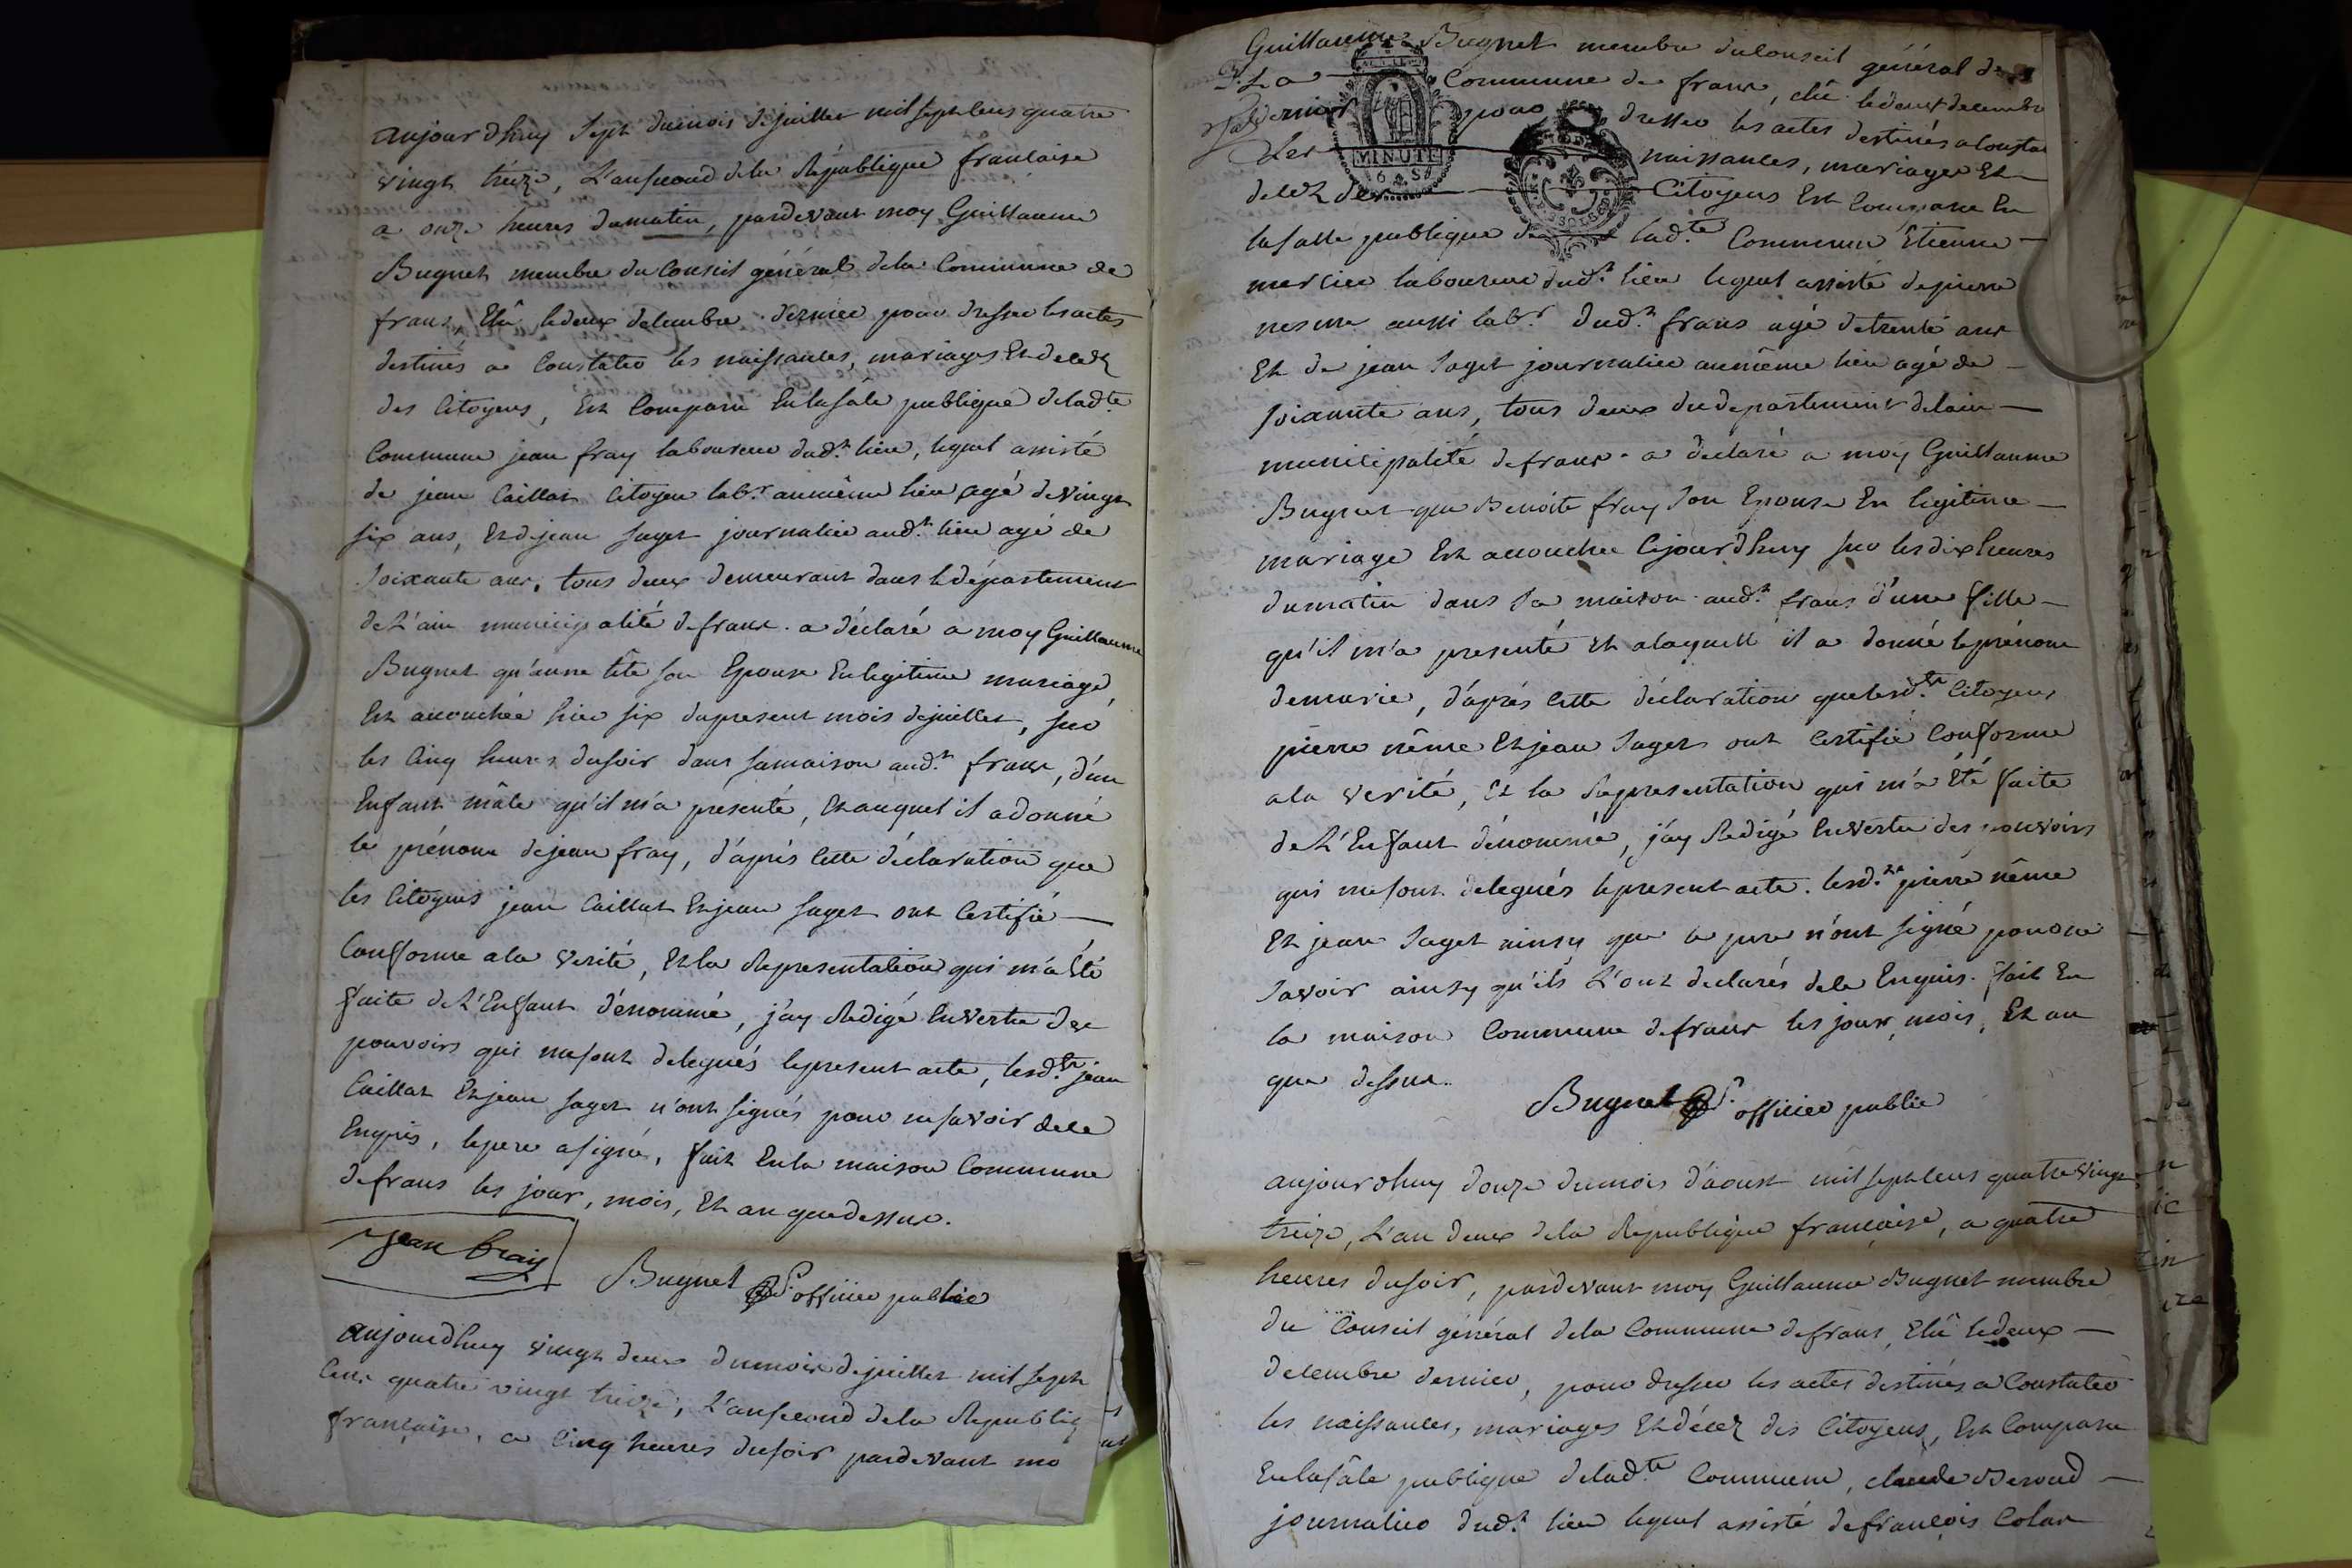 aujourdhuy sept dumois dejuillet mil sept cens quatre
vingt treize, L'an second dela République française
a onze heures dumatin, pardevant moy Guillaume
Bugnet membre du Conseil général dela Commune de
frans, Elû ledeux decembre dernier pour dresser les actes
destinés a Constater les naissances, mariages Et decez
des Citoyens, Est Comparu En la sâle publique delad.te
Commune jean fray laboureur dud.t lieu, lequel assisté
de jean Caillat Citoyen lab.r aumême lieu agé devingt
six ans, Et dejean saget journalier aud.t lieu agé de
soixante ans, tous deux demeurant dans le département
de L'ain municipalité defrans. a déclaré a moy Guillaume
Bugnet qu'anne tête son Epouse En legitime mariage,
Est accouchée hier six dupresent mois dejuillet, sur
les Cinq heures dusoir dans samaison aud.t frans, d'un
Enfant mâle qu'il m'a présenté, Et auquel il a donné
le prénom dejean fray, d'après Cette déclaration que
les Citoyens jean Caillat Et jean saget ont Certifié
Conforme a la verité, Et la Representation qui m'a Eté
faite de L'Enfant dénommé, j'ay Redigé En vertu des
pouvoirs qui me sont delegués le present acte, lesd.ts jean
Caillat Et jean saget n'ont signés pour ne savoir de ce
Enquis, le pere a signé, fait En la maison Commune
defrans les jour, mois, Et an que dessus.
jean fray
Bugnet officier public
aujourdhuy vingt deux dumois dejuillet mil sept
Cens quatre vingt treize, L'an second dela Republiq
française, a Cinq heures dusoir pardevant mo
Guillaume Bugnet membre du Conseil général de
La Commune de frans, élû le deux decembre
dernier pour dresser les actes destinés a Consta
MINUTE
6 S
des naissances, mariages Et
decez des Citoyens Est Comparu En
la salle publique de lad.te Commune Etienne
mercier laboureur dud.t lieu lequel assisté de pierre
nesme aussi lab.r dud.t frans agé detrente ans
Et de jean saget journalier aumême lieu agé de
soixante ans, tous deux du departement delain
municipalité defrans. a declaré a moy Guillaume
Bugnet que Benoite fray son Epouse En legitime
mariage Est accouchée Cejourdhuy sur les dix heures
dumatin dans sa maison aud.t frans d'une fille
qu'il m'a presenté Et a laquell il a donné le prénom
demarie, d'après Cette déclaration que lesd.ts Citoyens
pierre nême Et jean saget ont Certifié Conforme
a la verité, Et la Representation qui m'a Eté faite
de L'Enfant dénommé, j'ay Redigé En vertu des pouvoirs
qui me sont delegués le present acte. lesd.ts pierre nême
Et jean saget ainsy que le pere n'ont signé pour ne
savoir ainsy qu'ils L'ont declarés dele Enquis. fait En
la maison Commune defrans les jour, mois, Et an
que dessus.
Bugnet officier public
aujourdhuy douze dumois d'aoust mil sept cens quatre vingt
treize, L'an deux dela Republique française, a quatre
heures dusoir, pardevant moy Guillaume Bugnet membre
du Conseil général dela Commune defrans, Elû ledeux
decembre dernier, pour dresser les actes destinés a Constater
les naissances, mariages Et décez des Citoyens, Est Comparu
En la sâle publique delad.te Commune, claude Beroud
journalier dud.t lieu lequel assisté de françois Colar